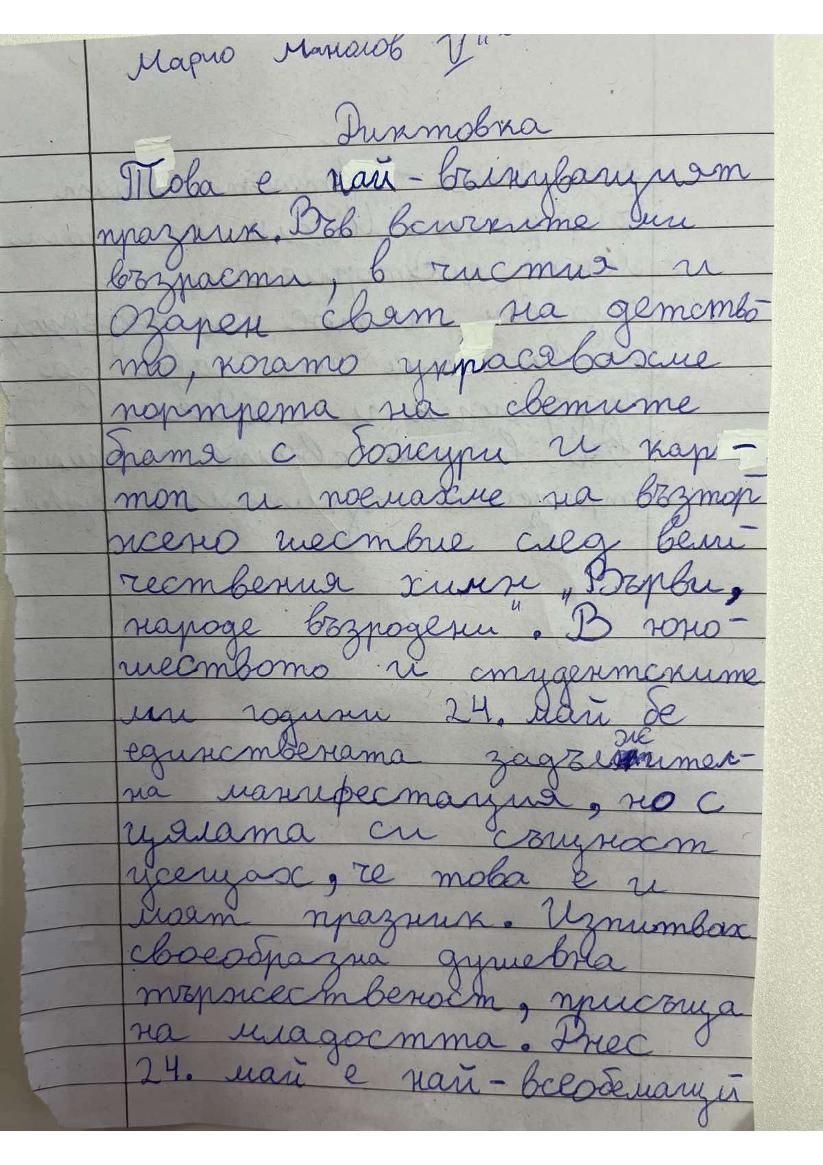 Марио Манолов V"
Диктовка
Това е най-вълнуващият
празник. Във всичките ми
възрасти, в чистия и
озарен свят на детство-
то, когато украсявахме
портрета на светите
братя с божури и кар-
топ и поемахме на възтор-
жено шествие след вели-
чествения химн „Върви,
народе възродени". В юно-
шеството и студентските
ми години 24. май бе
единствената задължител-
на манифестация, но с
цялата си същност
усещах, че това е и
моят празник. Изпитвах
своеобразна душевна
тържественост, присъща
на младостта. Днес
24. май е най-всеобемащи